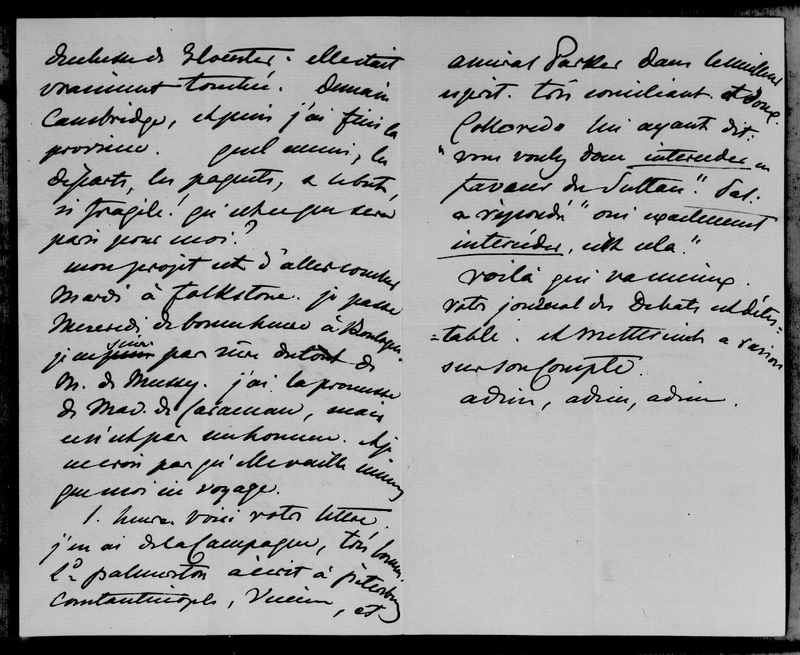 duchesse de Glocester. elle était
vraiment touchée. Demain
Cambridge, et puis j'ai fini la
province. quel ennui, les
départs, les paquets, ma santé
si fragile! qu'est-ce que sera
paris pour moi?
mon projet est d'aller coucher
Mardi à Folkstone. je passe
Mercredi de bonne heure à Boulogne.
je ne suis pas sûre du tout de
M. de Mussy. j'ai la promesse
de Mad. de Caraman, mais
ce n'est pas un homme. et je
ne crois pas qu'elle vaille mieux
que moi en voyage.
1. heure voici votre lettre.
j'en ai de la Campagne, très bonnes.
Ld palmerston a écrit à petersbourg
Constantinople, Vienne, et
amiral Parker dans le meilleur
esprit. très conciliant et doux.
Colloredo lui ayant dit:
"vous voulez donc intercéder en
faveur du Sultan". Pal:
a répondu "oui exactement
intercéder, c'est cela."
voilà qui va mieux.
votre journal des Débats est détes-
=table. et Metternich a raison
sur son Compte.
adieu, adieu, adieu.